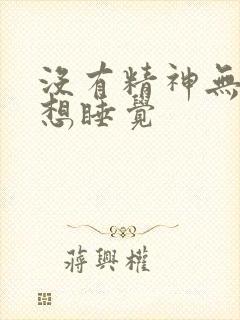 沒有精神無
想睡覺
蔣興權